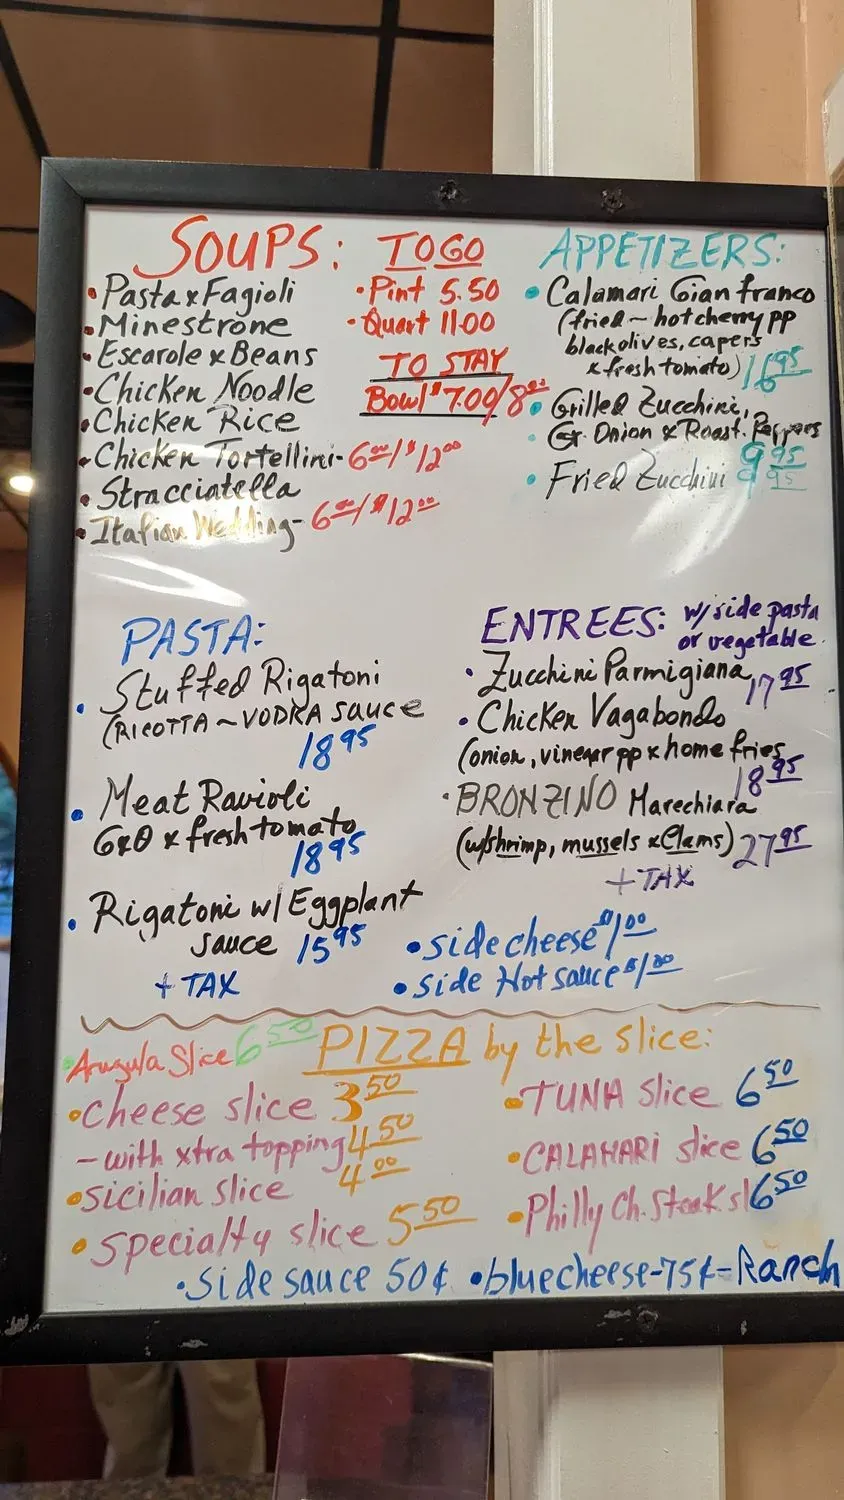 SOUPS:
• Pasta x Fagioli
• Minestrone
• Escarole x Beans
• Chicken Noodle
• Chicken Rice
• Chicken Tortellini - 6.00/$12.00
• Stracciatella
• Italian Wedding - 6.00/$12.00
TO GO
• Pint 5.50
• Quart 11.00
TO STAY
Bowl $7.00/8.00
APPETIZERS:
• Calamari Gianfranco
(fried ~ hot cherry pp
black olives, capers
x fresh tomato) 16.95
• Grilled Zucchini,
• Gr. Onion x Roast. Peppers
9.95
• Fried Zucchini 9.95
PASTA:
• Stuffed Rigatoni
(RICOTTA ~ VODKA sauce
18.95
• Meat Ravioli
GxO x fresh tomato
18.95
• Rigatoni w/ Eggplant
sauce 15.95
+ TAX
ENTREES: w/side pasta
or vegetable
• Zucchini Parmigiana
17.95
• Chicken Vagabondo
(onion, vinegar pp x home fries
18.95
• BRONZINO Marechiara
(w/shrimp, mussels x Clams) 27.95
+ TAX
• side cheese $1.00
• side Hot sauce $1.00
PIZZA by the slice:
• Arugula Slice 6.50
• cheese slice 3.50
- with xtra topping 4.50
• sicilian slice 4.00
• specialty slice 5.50
• TUNA slice 6.50
• CALAMARI slice 6.50
• Philly Ch. Steak sl 6.50
• side sauce 50¢ • bluecheese - 75¢ - Ranch